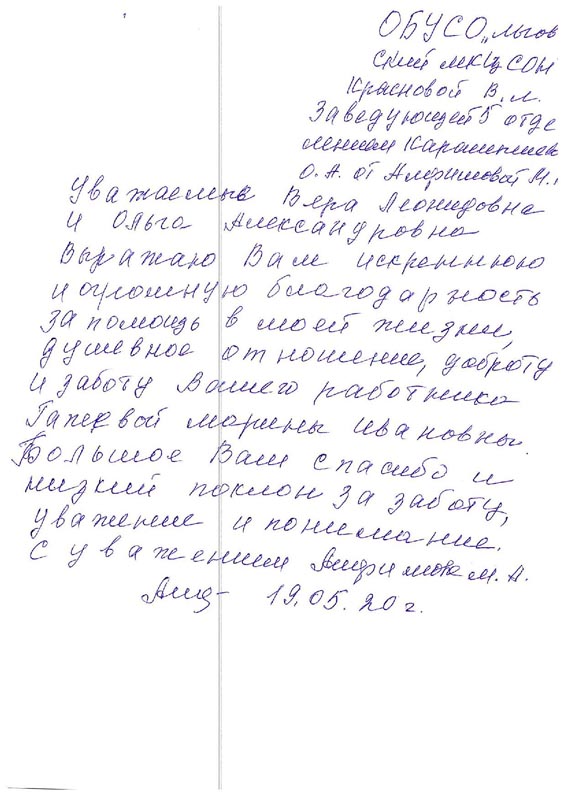 ОБУСО „Льгов
ский МКЦСОН
Красновой В.Л.
Заведующей 5 отде
лением
О.А. от Анфимовой М.
Уважаемые Вера Леонидовна
и Ольга Александровна
Выражаю Вам искреннюю
и огромную благодарность
за помощь в моей жизни,
душевное отношение, доброту
и заботу Вашего работника
Марины Ивановны.
Большое Вам спасибо и
низкий поклон за заботу,
уважение и понимание.
С уважением Анфимова М.А.
19.05.20 г.